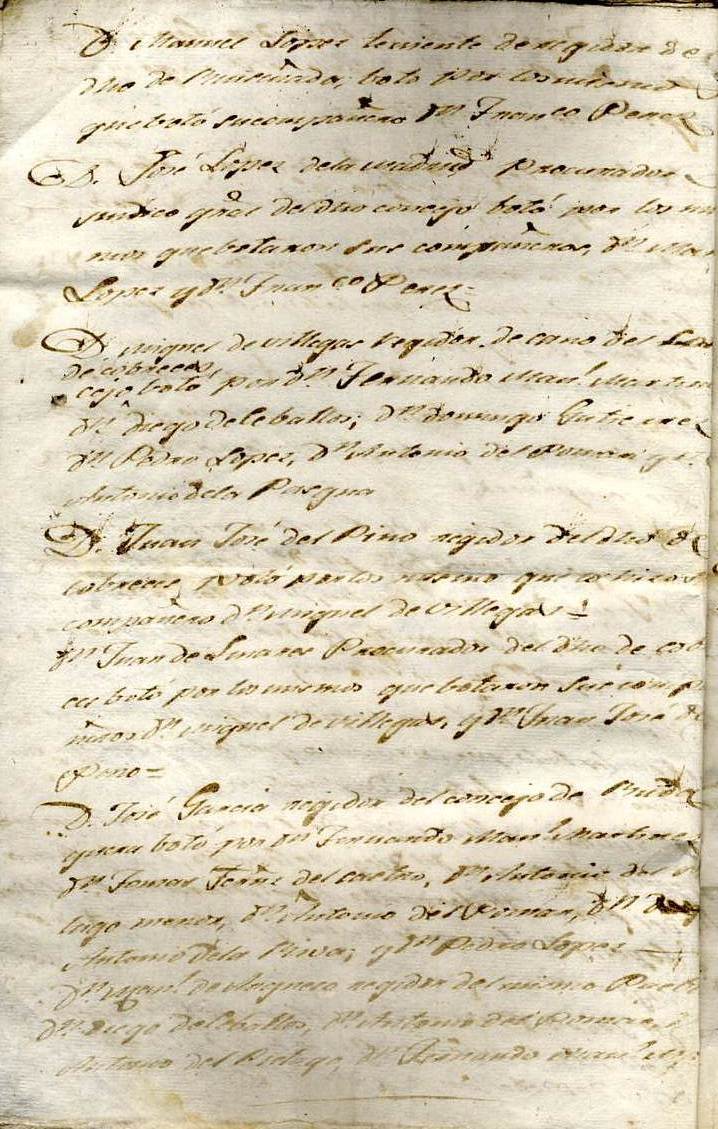 D. Manuel Lopez teniente de regidor de
dho de Ruiseñada, botó por los mismos
que botó su compañero Dn. Franco Perez
D. José Lopez de la Madrid Procurador
sindico gral del dho concejo botó por los
mos que botaron sus compañeros, Dn. Man
Lopez y Dn. Franco Perez=
D. Miguel de Villegas regidor decano del
de cobreces,
cejo botó por Dn. Fernando Manl. Martin
Dn. Diego de Ceballos; Dn. Domingo Gutierrez
Dn. Pedro Lopez, Dn. Antonio del Pomar y
Antonio de la Pasqua
D. Juan José del Pino regidor del dho de
cobreces, votó por los mismo que lo hizo s
compañero Dn. Miguel de Villegas=
Dn. Juan de Linares Procurador del dho de cob
ces botó por los mismos que botaron sus comp
ñeros Dn. Miguel de Villegas, y Dn. Juan José de
Pino=
D. José Garcia regidor del concejo de Ruda
guera botó por Dn. Fernando Manl. Martinez
Dn. Tomas Ferrz del castro, Dn. Antonio del
lago menor, Dn. Antonio del Pomar, Dn.
Antonio de la Riva; y Dn. Pedro Lopez
Dn. Manl. de regidor del mismo
Dn. Diego de Ceballos, Dn. Antonio del Pomar,
Antonio del Dn. Fernando Manl.